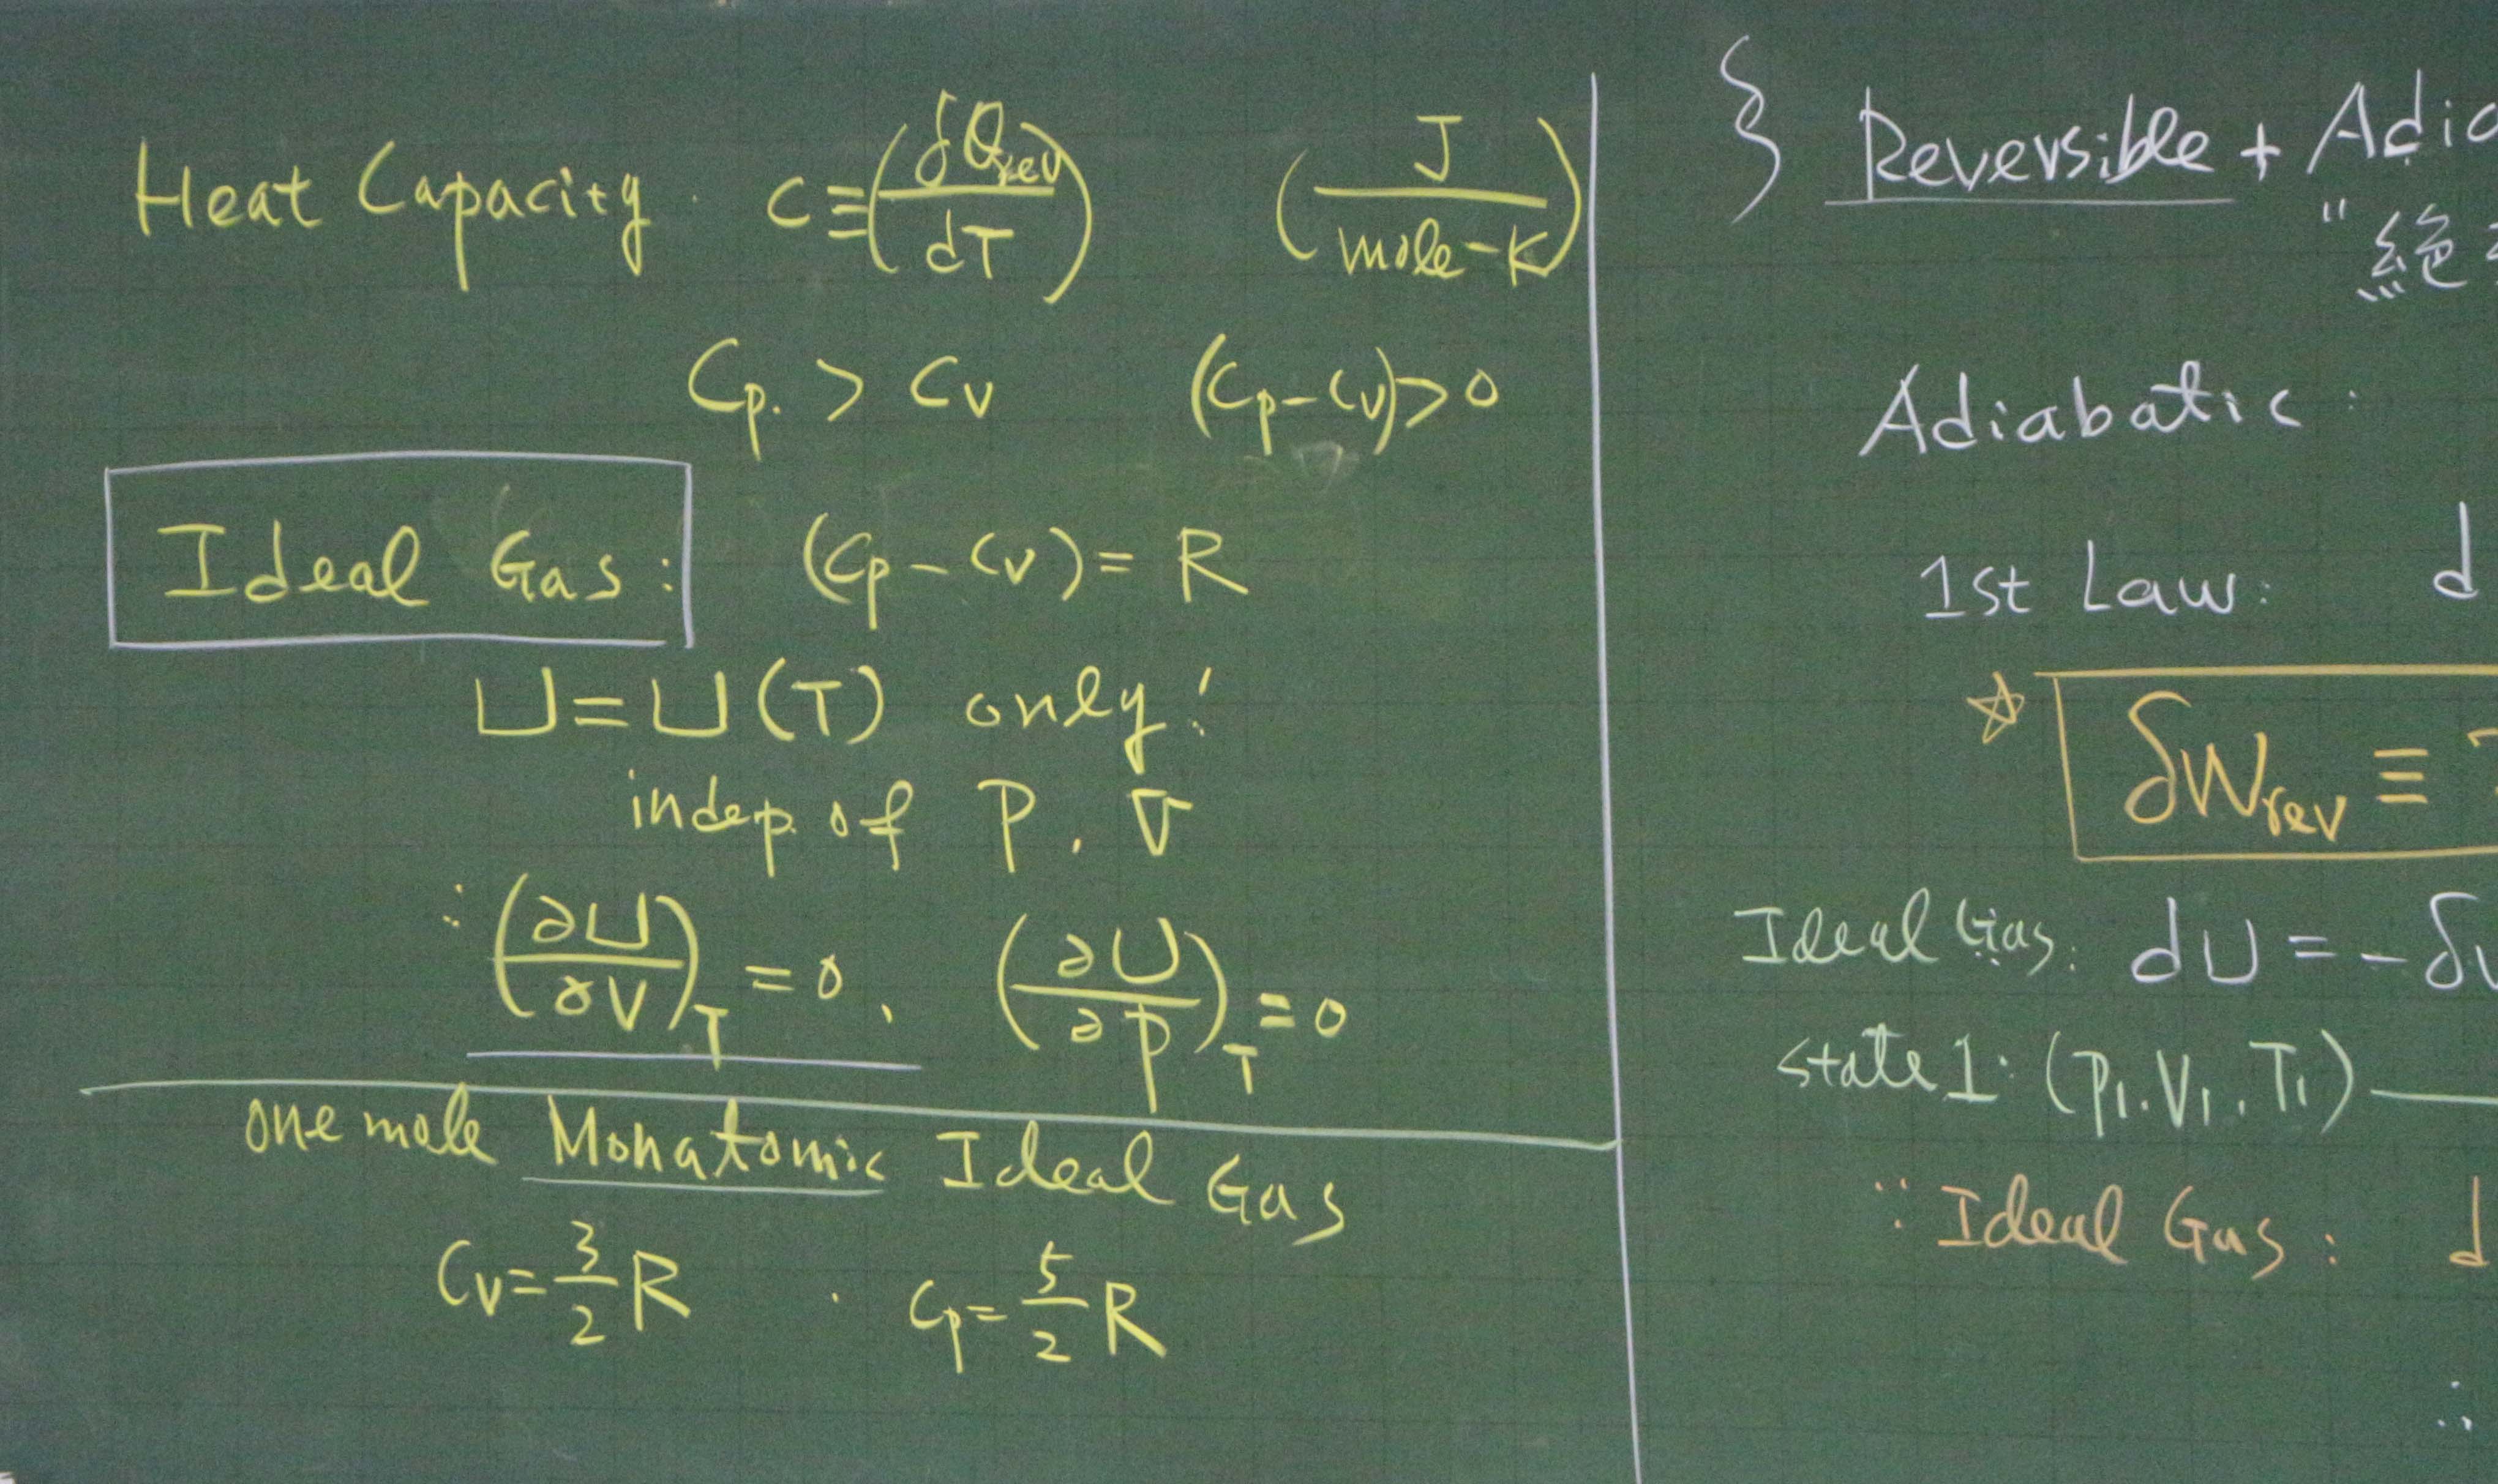 Heat Capacity. C ≡ (δQrev / dT) (J / mole-K)
Cp. > Cv (Cp - Cv) > 0
Ideal Gas: (Cp - Cv) = R
U = U(T) only!
indep. of P, V
∴ (∂U/∂V)T = 0, (∂U/∂P)T = 0
one mole Monatomic Ideal Gas
Cv = 3/2 R . Cp = 5/2 R
§ Reversible +
"絕
Adiabatic:
1st Law: d
☆ δWrev ≡
Ideal Gas: dU = -δ
state 1: (P1, V1, T1)
∵ Ideal Gas: d
∴